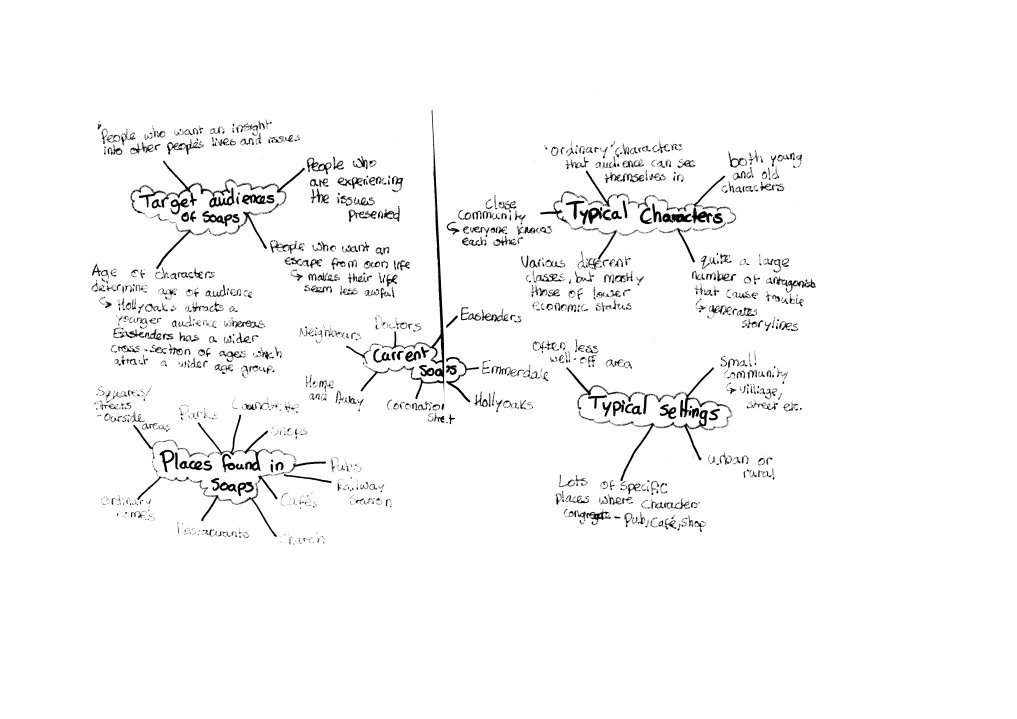 People who want an insight
into other people's lives and issues
People who
are experiencing
the issues
presented
Target audiences
of Soaps
People who want an
escape from own life
↳ makes their life
seem less awful
Age of characters
determine age of audience
↳ Hollyoaks attracts a
younger audience whereas
Eastenders has a wider
cross-section of ages which
attract a wider age group.
'ordinary' characters
that audience can see
themselves in
both young
and old
characters
Close
community
↳ everyone knows
each other
Typical Characters
Various different
classes, but mostly
those of lower
economic status
quite a large
number of antagonists
that cause trouble
↳ generates
storylines
Eastenders
Doctors
Neighbours
Current
Soaps
Emmerdale
Home
and Away
Coronation
Street
Hollyoaks
Often less
well-off area
Small
community
↳ villiage,
street etc.
Typical settings
urban or
rural
Lots of specific
places where characters
congregate - Pub, Café, Shop
Squares/
Streets
- outside
areas
Parks
Laundrette
Shops
Places found in
Soaps
Pubs
Railway
Station
Cafés
Church
Restaurants
ordinary
homes